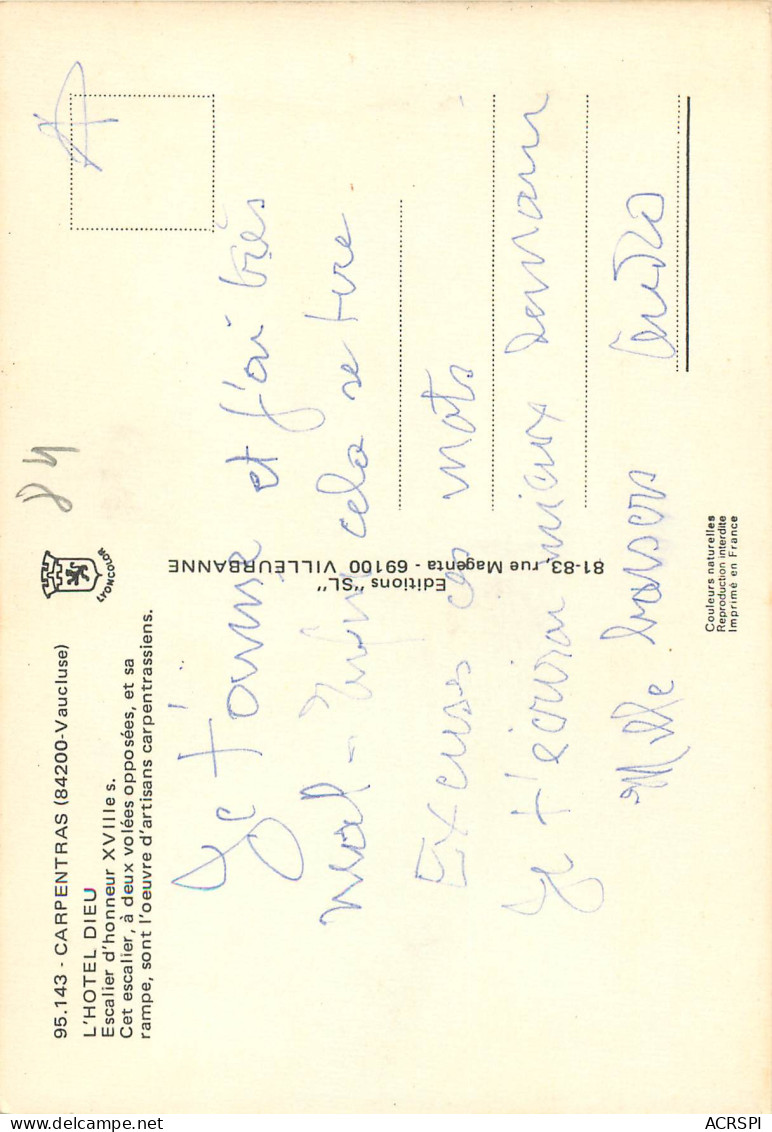 95.143 - CARPENTRAS (84200-Vaucluse)
L'HOTEL DIEU
Escalier d'honneur XVIIIe s.
Cet escalier, à deux volées opposées, et sa
rampe, sont l'oeuvre d'artisans carpentrassiens.
LYONCOLOR
84
Je t'aime et j'ai très
mal - Enfin cela se tire
Excuses ces mots
Je t'écrirai mieux demain
Mille baisers
Editions "SL"
81-83, rue Magenta - 69100 VILLEURBANNE
Couleurs naturelles
Reproduction interdite
Imprimé en France
ACRSPI